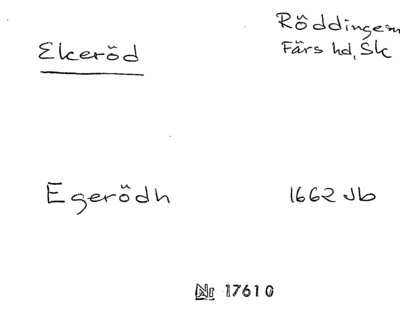 Ekeröd
Röddinge sn
Färs hd, Sk
Egerödh
1662 Jb
Nr 17610